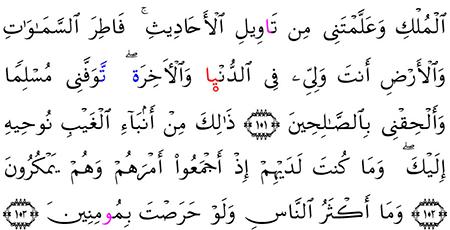 اَ۬لْمُلْكِ وَعَلَّمْتَنِى مِن تَاوِيلِ اِ۬لْأَحَادِيثِ ۚ فَاطِرَ اَ۬لسَّمَـٰوَٰتِ
وَالْأَرْضِ أَنتَ وَلِيِّۦ فِى اِ۬لدُّنْيٜا وَالْأَخِرَةِ ۖ تَوَفَّنِى مُسْلِمًا
وَأَلْحِقْنِى بِالصَّـٰلِحِينَ ١٠١ ذَٰلِكَ مِنْ أَنۢبَآءِ اِ۬لْغَيْبِ نُوحِيهِ
إِلَيْكَ ۖ وَمَا كُنتَ لَدَيْهِمْ إِذْ أَجْمَعُوٓا۟ أَمْرَهُمْ وَهُمْ يَمْكُرُونَ
١٠٢ وَمَآ أَكْثَرُ اُ۬لنَّاسِ وَلَوْ حَرَصْتَ بِمُومِنِينَ ١٠٣